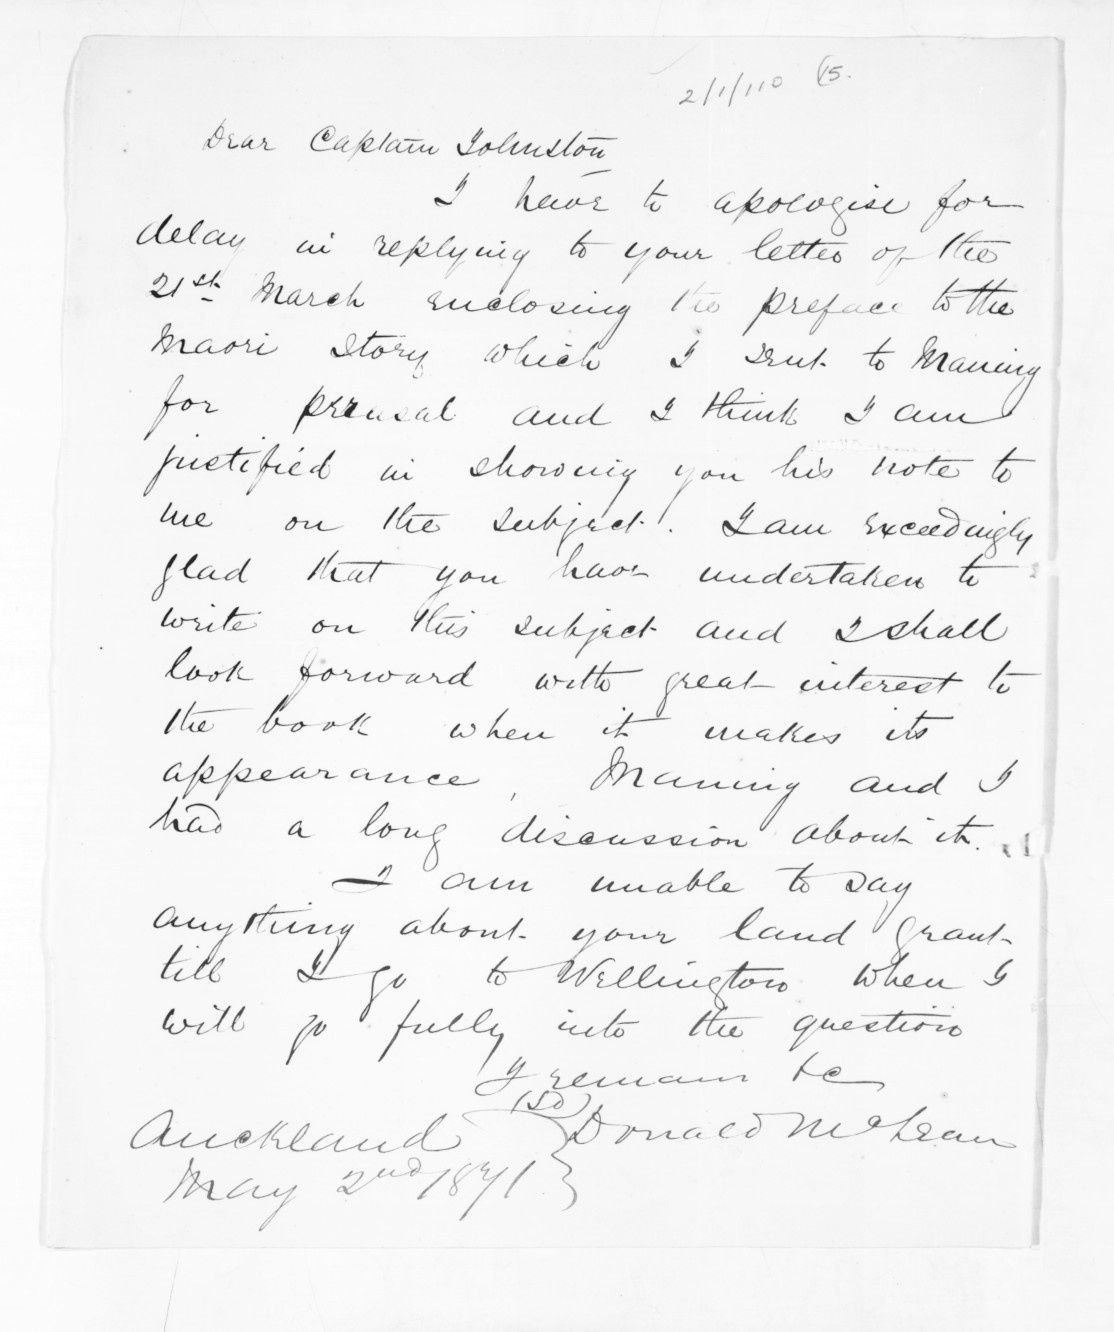 2/1/110 (15.
Dear Captain Johnston
I have to apologise for
delay in replying to your letter of the
21st March enclosing the preface to the
Maori Story which I sent to Maning
for perusal and I think I am
justified in showing you his note to
me on the subject. I am exceedingly
glad that you have undertaken to
write on this subject and I shall
look forward with great interest to
the book when it makes its
appearance, Maning and I
had a long discussion about it.
I am unable to say
anything about your land grant
till I go to Wellington when I
will go fully into the question
I remain &c
(Sd)
Auckland } Donald McLean
May 2nd 1871